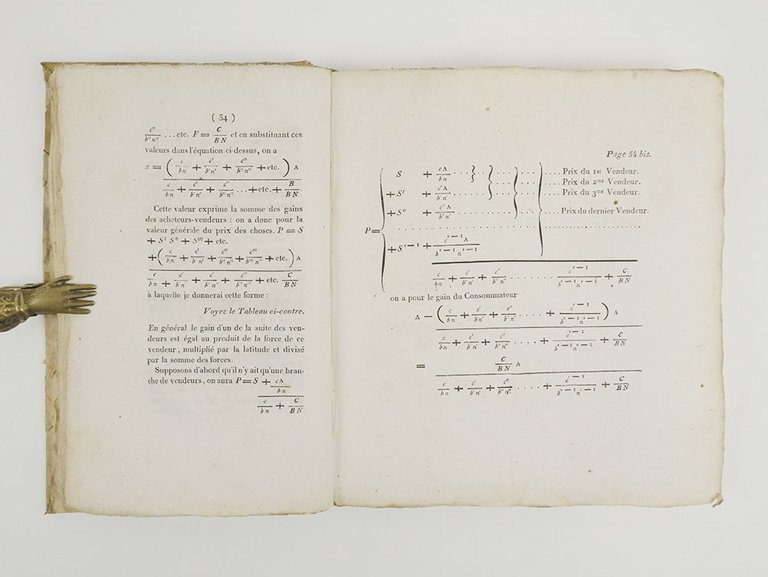 ( 54 )
c''/b''n'' ...etc. F = C/BN et en substituant ces
valeurs dans l'équation ci-dessus, on a
x = ( c/bn + c'/b'n' + c''/b''n'' + etc. ) Δ
c/bn + c'/b'n' + c''/b''n'' ... + etc. + B/BN
Cette valeur exprime la somme des gains
des acheteurs-vendeurs : on a donc pour la
valeur générale du prix des choses. P = S
+ S' S'' + S''' + etc.
+ ( c/bn + c'/b'n' + c''/b''n'' + c'''/b'''n''' + etc. ) Δ
c/bn + c'/b'n' + c''/b''n'' + c'''/b'''n''' + etc. C/BN
à laquelle je donnerai cette forme :
Voyez le Tableau ci-contre.
En général le gain d'un de la suite des ven-
deurs est égal au produit de la force de ce
vendeur, multiplié par la latitude et divisé
par la somme des forces.
Supposons d'abord qu'il n'y ait qu'une bran-
che de vendeurs, on aura P = S + cΔ/bn
c/bn + C/BN
Page 54 bis.
S + cΔ/bn .... Prix du 1er Vendeur.
.... Prix du 2me Vendeur.
+ S' + c'Δ/b'n' .... Prix du 3me Vendeur.
+ S'' + c''Δ/b''n'' .... Prix du dernier Vendeur.
P =
+ S'-1 + c'-1Δ/b'-1n'-1
c/bn + c'/b'n' + c''/b''n'' ........ c'-1/b'-1n'-1 + C/BN
on a pour le gain du Consommateur
Δ — ( c/bn + c'/b'n' + c''/b''n'' .... + c'-1/b'-1n'-1 ) Δ
c/bn + c'/b'n' + c''/b''n'' .... + c'-1/b'-1n'-1 + C/BN
= C/BN Δ
c/bn + c'/b'n' + c''/b''n'' .... + c'-1/b'-1n'-1 + C/BN